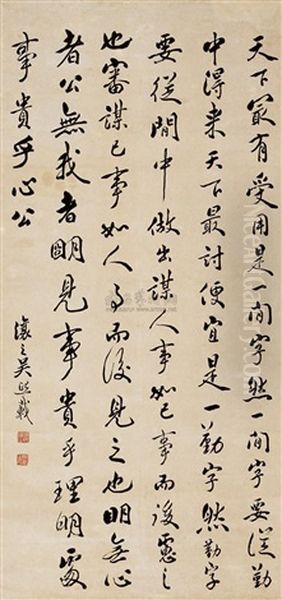 天下最有受用是一閒字然一閒字要從勤
中得来天下最討便宜是一勤字然勤字
要從閒中做出謀人事如己事而後慮之
也審謀己事如人事而後見之也明無心
者公無我者明見事貴乎理明處
事貴乎心公
讓之吳熙載